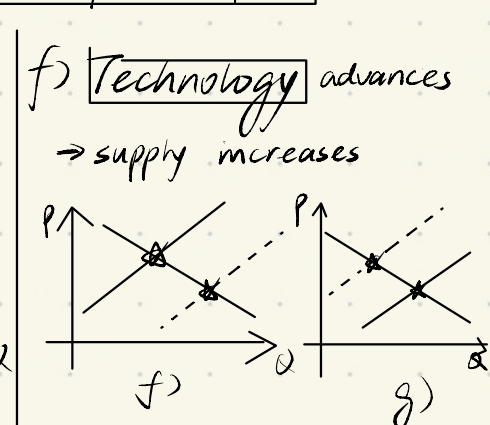 f) Technology advances
→ supply increases
P
P
Q
Q
f)
g)